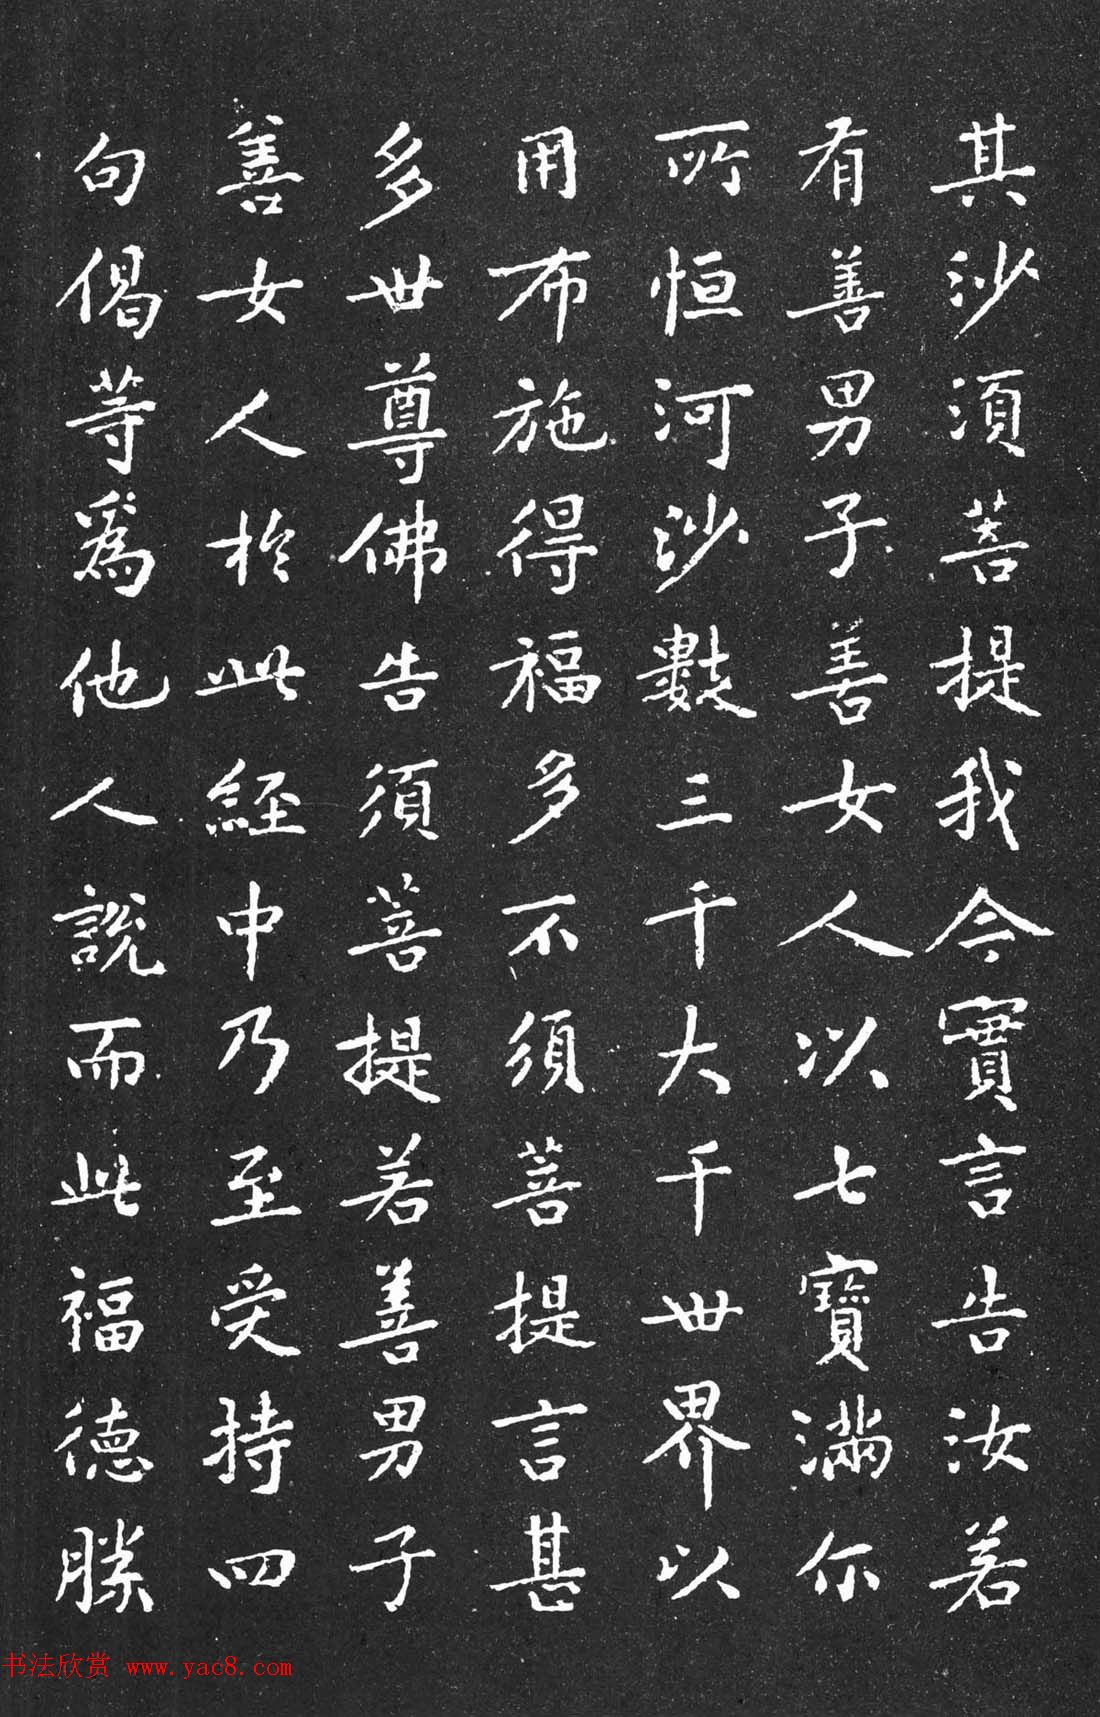 其沙須菩提我今實言告汝若
有善男子善女人以七寶滿尒
所恒河沙數三千大千世界以
用布施得福多不須菩提言甚
多世尊佛告須菩提若善男子
善女人於此經中乃至受持四
句偈等爲他人說而此福德勝
书法欣赏 www.yac8.com